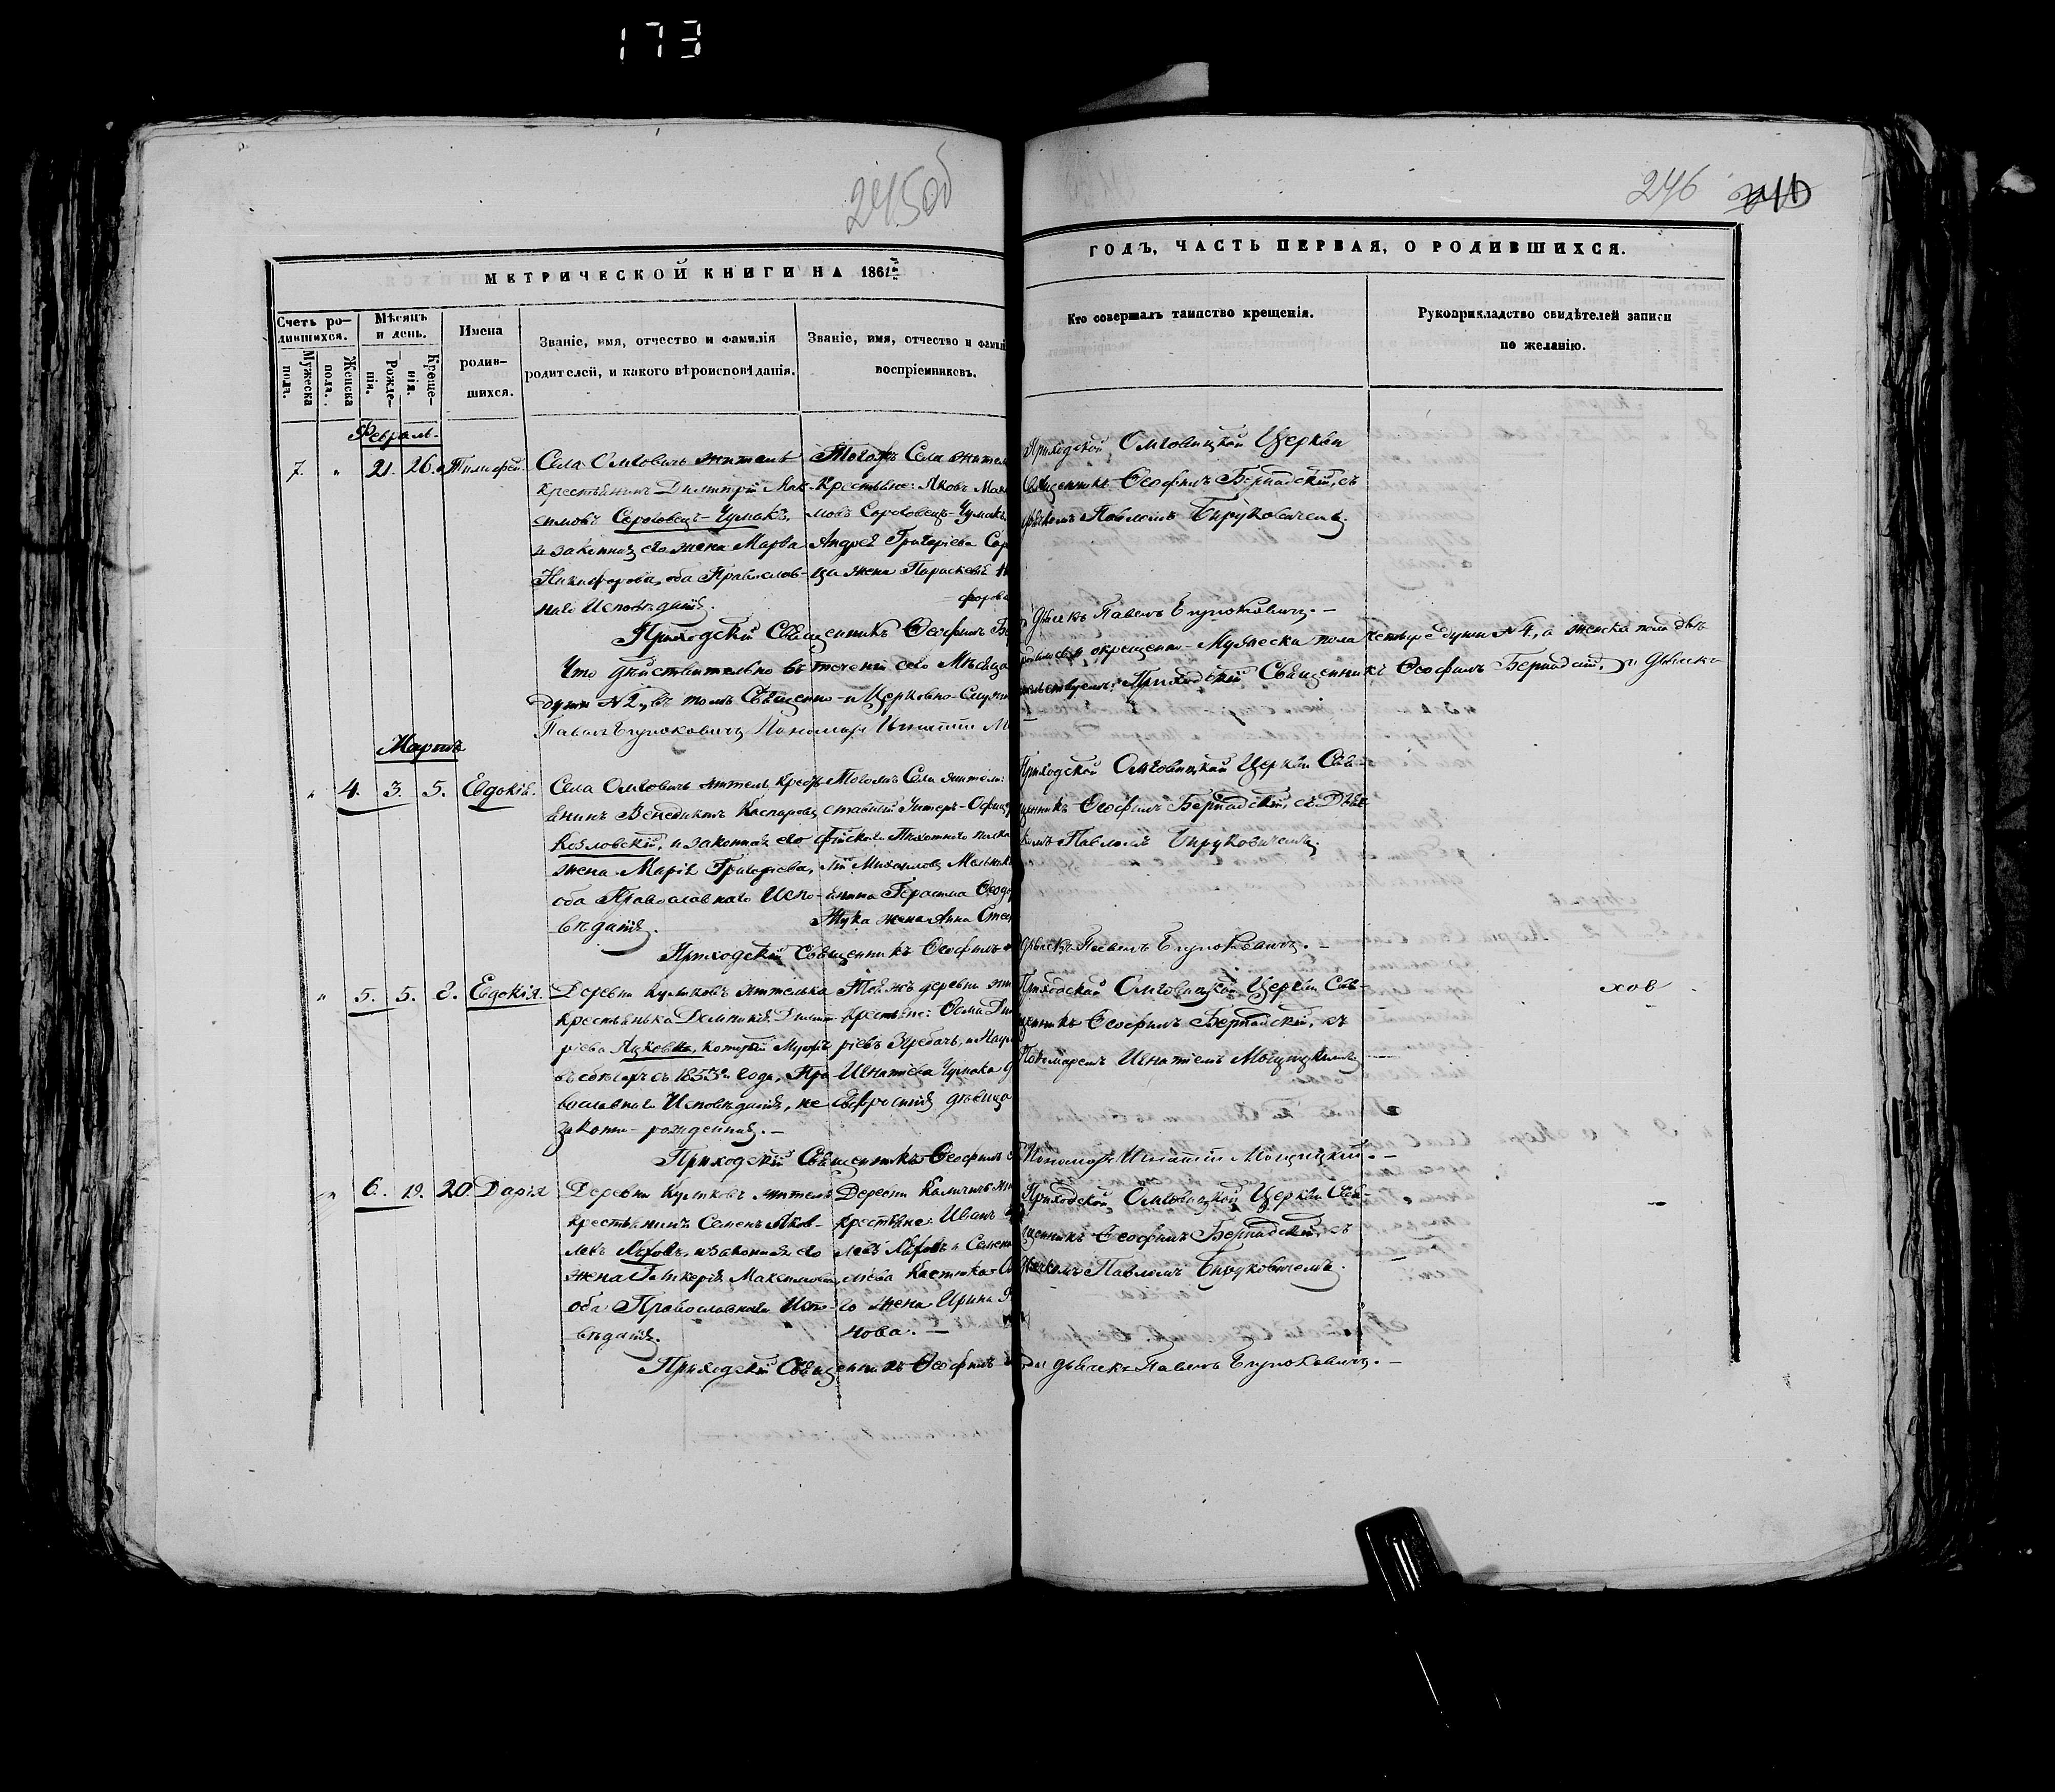 173
245об
246
МЕТРИЧЕСКОЙ КНИГИ НА 1861й
ГОДЪ, ЧАСТЬ ПЕРВАЯ, О РОДИВШИХСЯ.
Счетъ ро-
дившихся.
Мужеска
пола.
Женска
пола.
Мѣсяцъ
и день.
Рожде-
нія.
Креще-
нія.
Имена
родив-
шихся.
Званіе, имя, отчество и фамилія
родителей, и какого вѣроисповѣданія.
Званіе, имя, отчество и фамилі
воспріемниковъ.
Кто совершалъ таинство крещенія.
Рукоприкладство свидѣтелей записи
по желанію.
Февраль.
7. " 21. 26. Тимофей.
Села Омговичъ житель
крестьянинъ Димитрій Мак-
симовъ Сороговецъ-Чумакъ,
и законная его жена Марѳа
Никифорова, оба Православ-
наго Исповѣданія.
Тогожъ Села жител
Крестьяне: Яковъ Мак
мовъ Сороговецъ-Чумакъ,
Андрея Григоріева Сор
ца жена Параскевія
форова
Приходской Омговицкой Церкви
Священникъ Ѳеофилъ Бернадскій, съ
Павломъ Бируковичемъ.
Приходскій Священникъ Ѳеофилъ Б
дьячекъ Павелъ Бируковичъ.—
Что дѣйствительно въ теченіи сего Мѣсяца
окрещено Мужеска пола четыре души №4, а женска пола двѣ
души №2, въ томъ Священно-и Церковно-Служи
Приходскій Священникъ Ѳеофилъ Бернадскій, Дьячекъ
Павелъ Бируковичъ, Пономарь Игнатій М
Мартъ
" 4. 3. 5. Евдокія.
Села Омговичъ житель крестъ
янинъ Венедиктъ Каспаровъ
Козловскій, и законная его
жена Марія Григоріева,
оба Православнаго Испо-
вѣданія.
Тогожъ Села жители:
ставный Унтеръ-Офице
Пѣхотнаго полка
Михаиловъ Мельник
янина Герасима Ѳеодо
Жука жена Анна Сте
Приходской Омговицкой Церкви Свя-
щенникъ Ѳеофилъ Бернадскій, съ Дьяч
комъ Павломъ Бируковичемъ.
Приходскій Священникъ Ѳеофилъ
дьячекъ Павелъ Бируковичъ.—
" 5. 5. 8. Евдокія.
Деревни Куликовъ жителька
крестьянька Домникія Димит-
ріева Яцковна, которой Мужъ
съ 1853го года, Пра
вославнаго Исповѣданія, не
законно-рожденная.—
Той жъ деревни жи
крестьяне: Ѳома Ди
ріевъ Прибочъ, и Мар
Игнатіева Чумака д
Евфросинія дѣвица
Приходской Омговицкой Церкви Свя-
щенникъ Ѳеофилъ Бернадскій, съ
Пономаремъ Игнатіемъ Мощицкимъ
Приходскій Священникъ Ѳеофилъ
Пономарь Игнатій Мощицкій.—
" 6. 19. 20. Дарія
Деревни Куликовъ житель
крестьянинъ Семенъ Яков-
левъ и законная его
жена Гликерія Максимова
оба Православнаго Испо-
вѣданія.
Деревни Каличичъ жи
крестьяне: Иванъ
левъ и Семена
Костюка
го жена Ирина
нова.—
Приходской Омговицкой Церкви Свя-
щенникъ Ѳеофилъ Бернадскій, съ
Дьячкомъ Павломъ Бируковичемъ.
Приходскій Священникъ Ѳеофилъ
дьячекъ Павелъ Бируковичъ.—